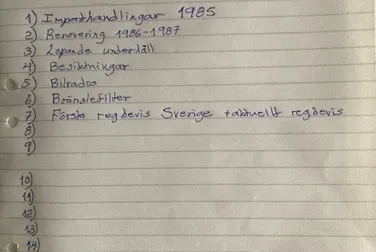 1) Importhandlingar 1985
2) Renovering 1986-1987
3) Löpande underhåll
4) Besiktningar
5) Bilradio
6) Bränslefilter
7) Första regbevis Sverige + aktuellt regbevis
8)
9)
10)
11)
12)
13)
14)